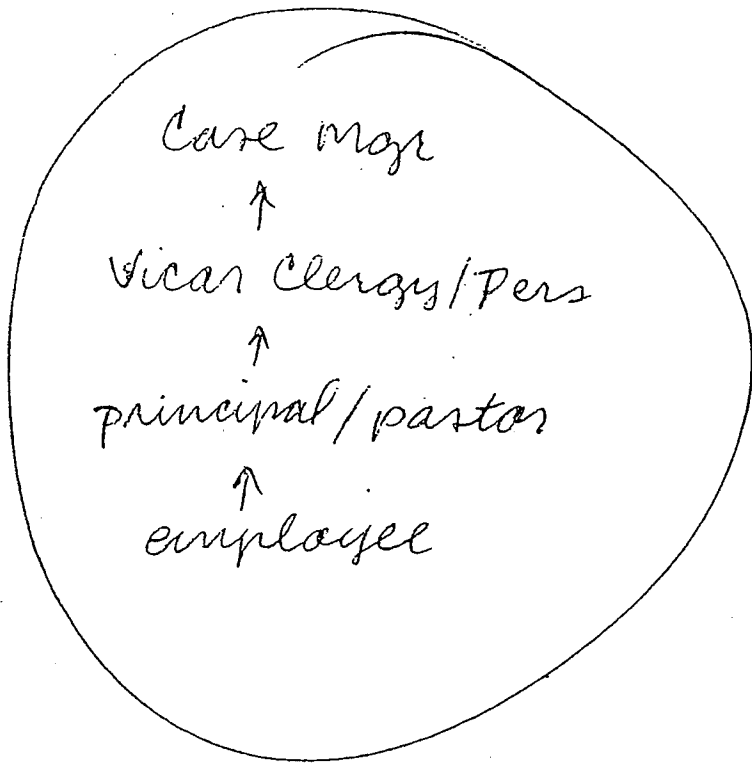 Case Mgr
↑
Vicar Clergy/Pers
↑
principal/pastor
↑
employee